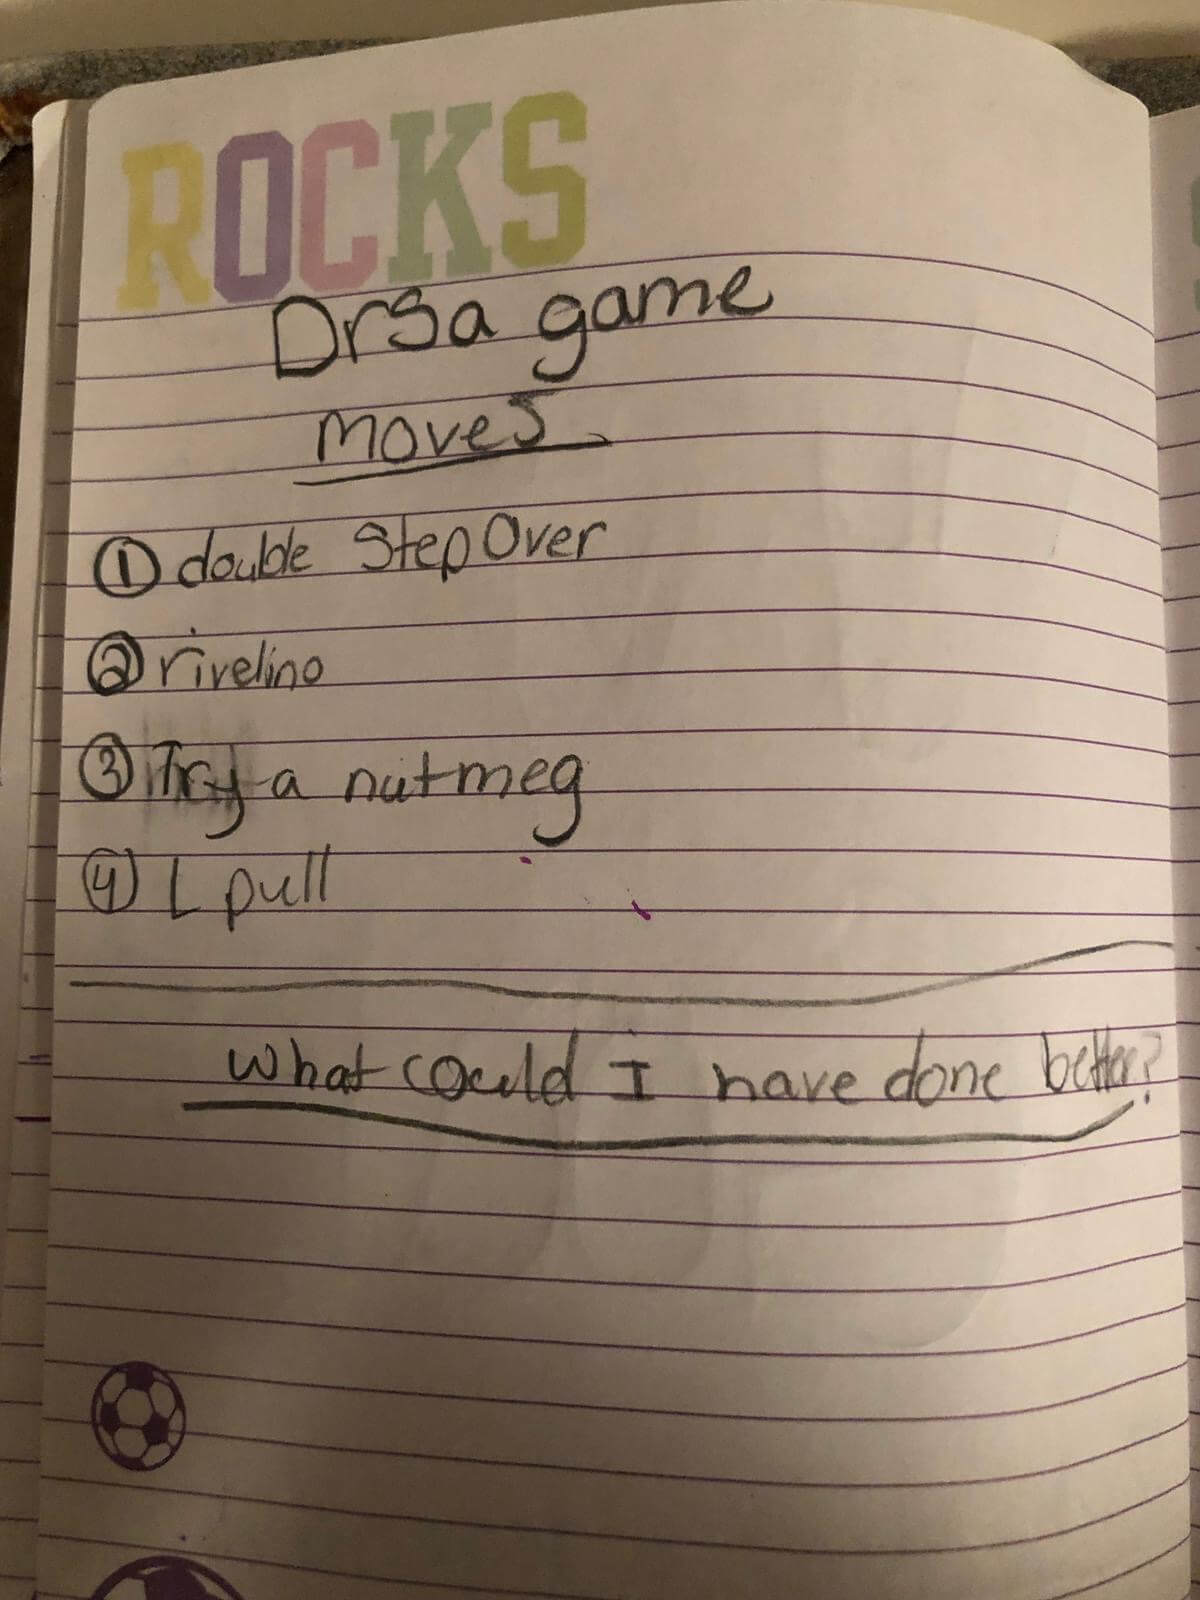 ROCKS
Drsa game
moves
① double StepOver
② rivelino
③ Try a nutmeg
④ L pull
What could I have done better?